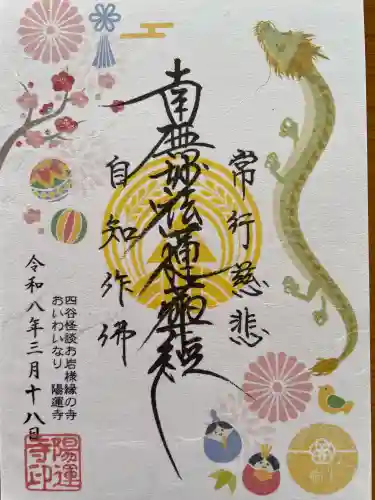 常行慈悲
南無妙法蓮華経
自知作佛
四谷怪談お岩様縁の寺
おいわいなり 陽運寺
令和八年三月十八日
陽運
寺印